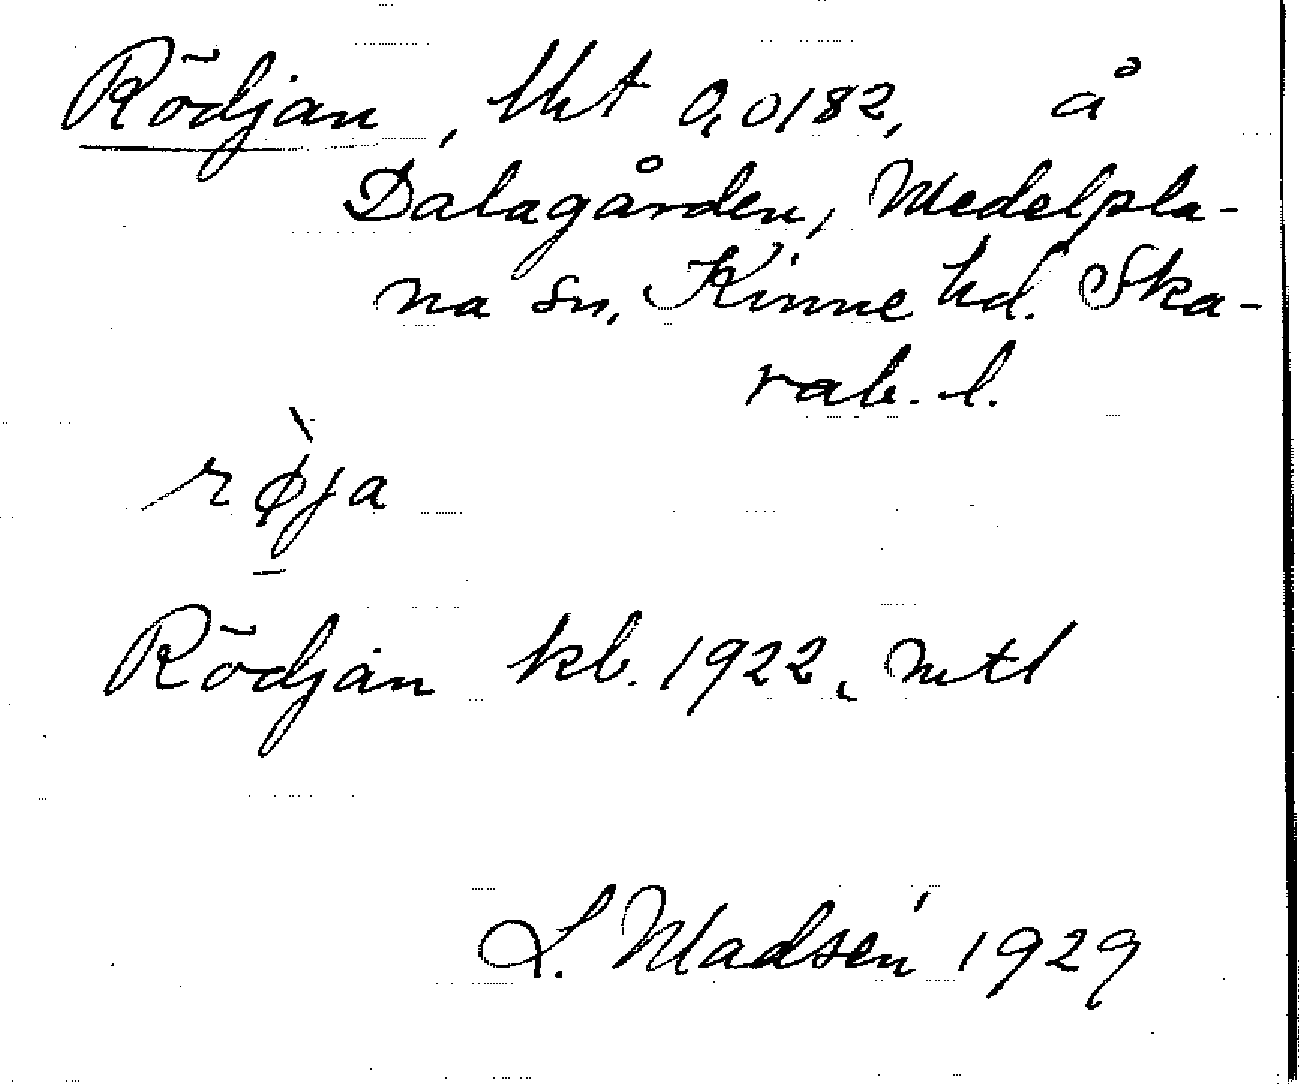 Rödjan, lht 0,0182, å
Dalagården, Medelpla-
na sn, Kinne hd. Ska-
rab. l.
rø̀ja
Rödjan kb. 1922, mtl
L. Madsén 1929